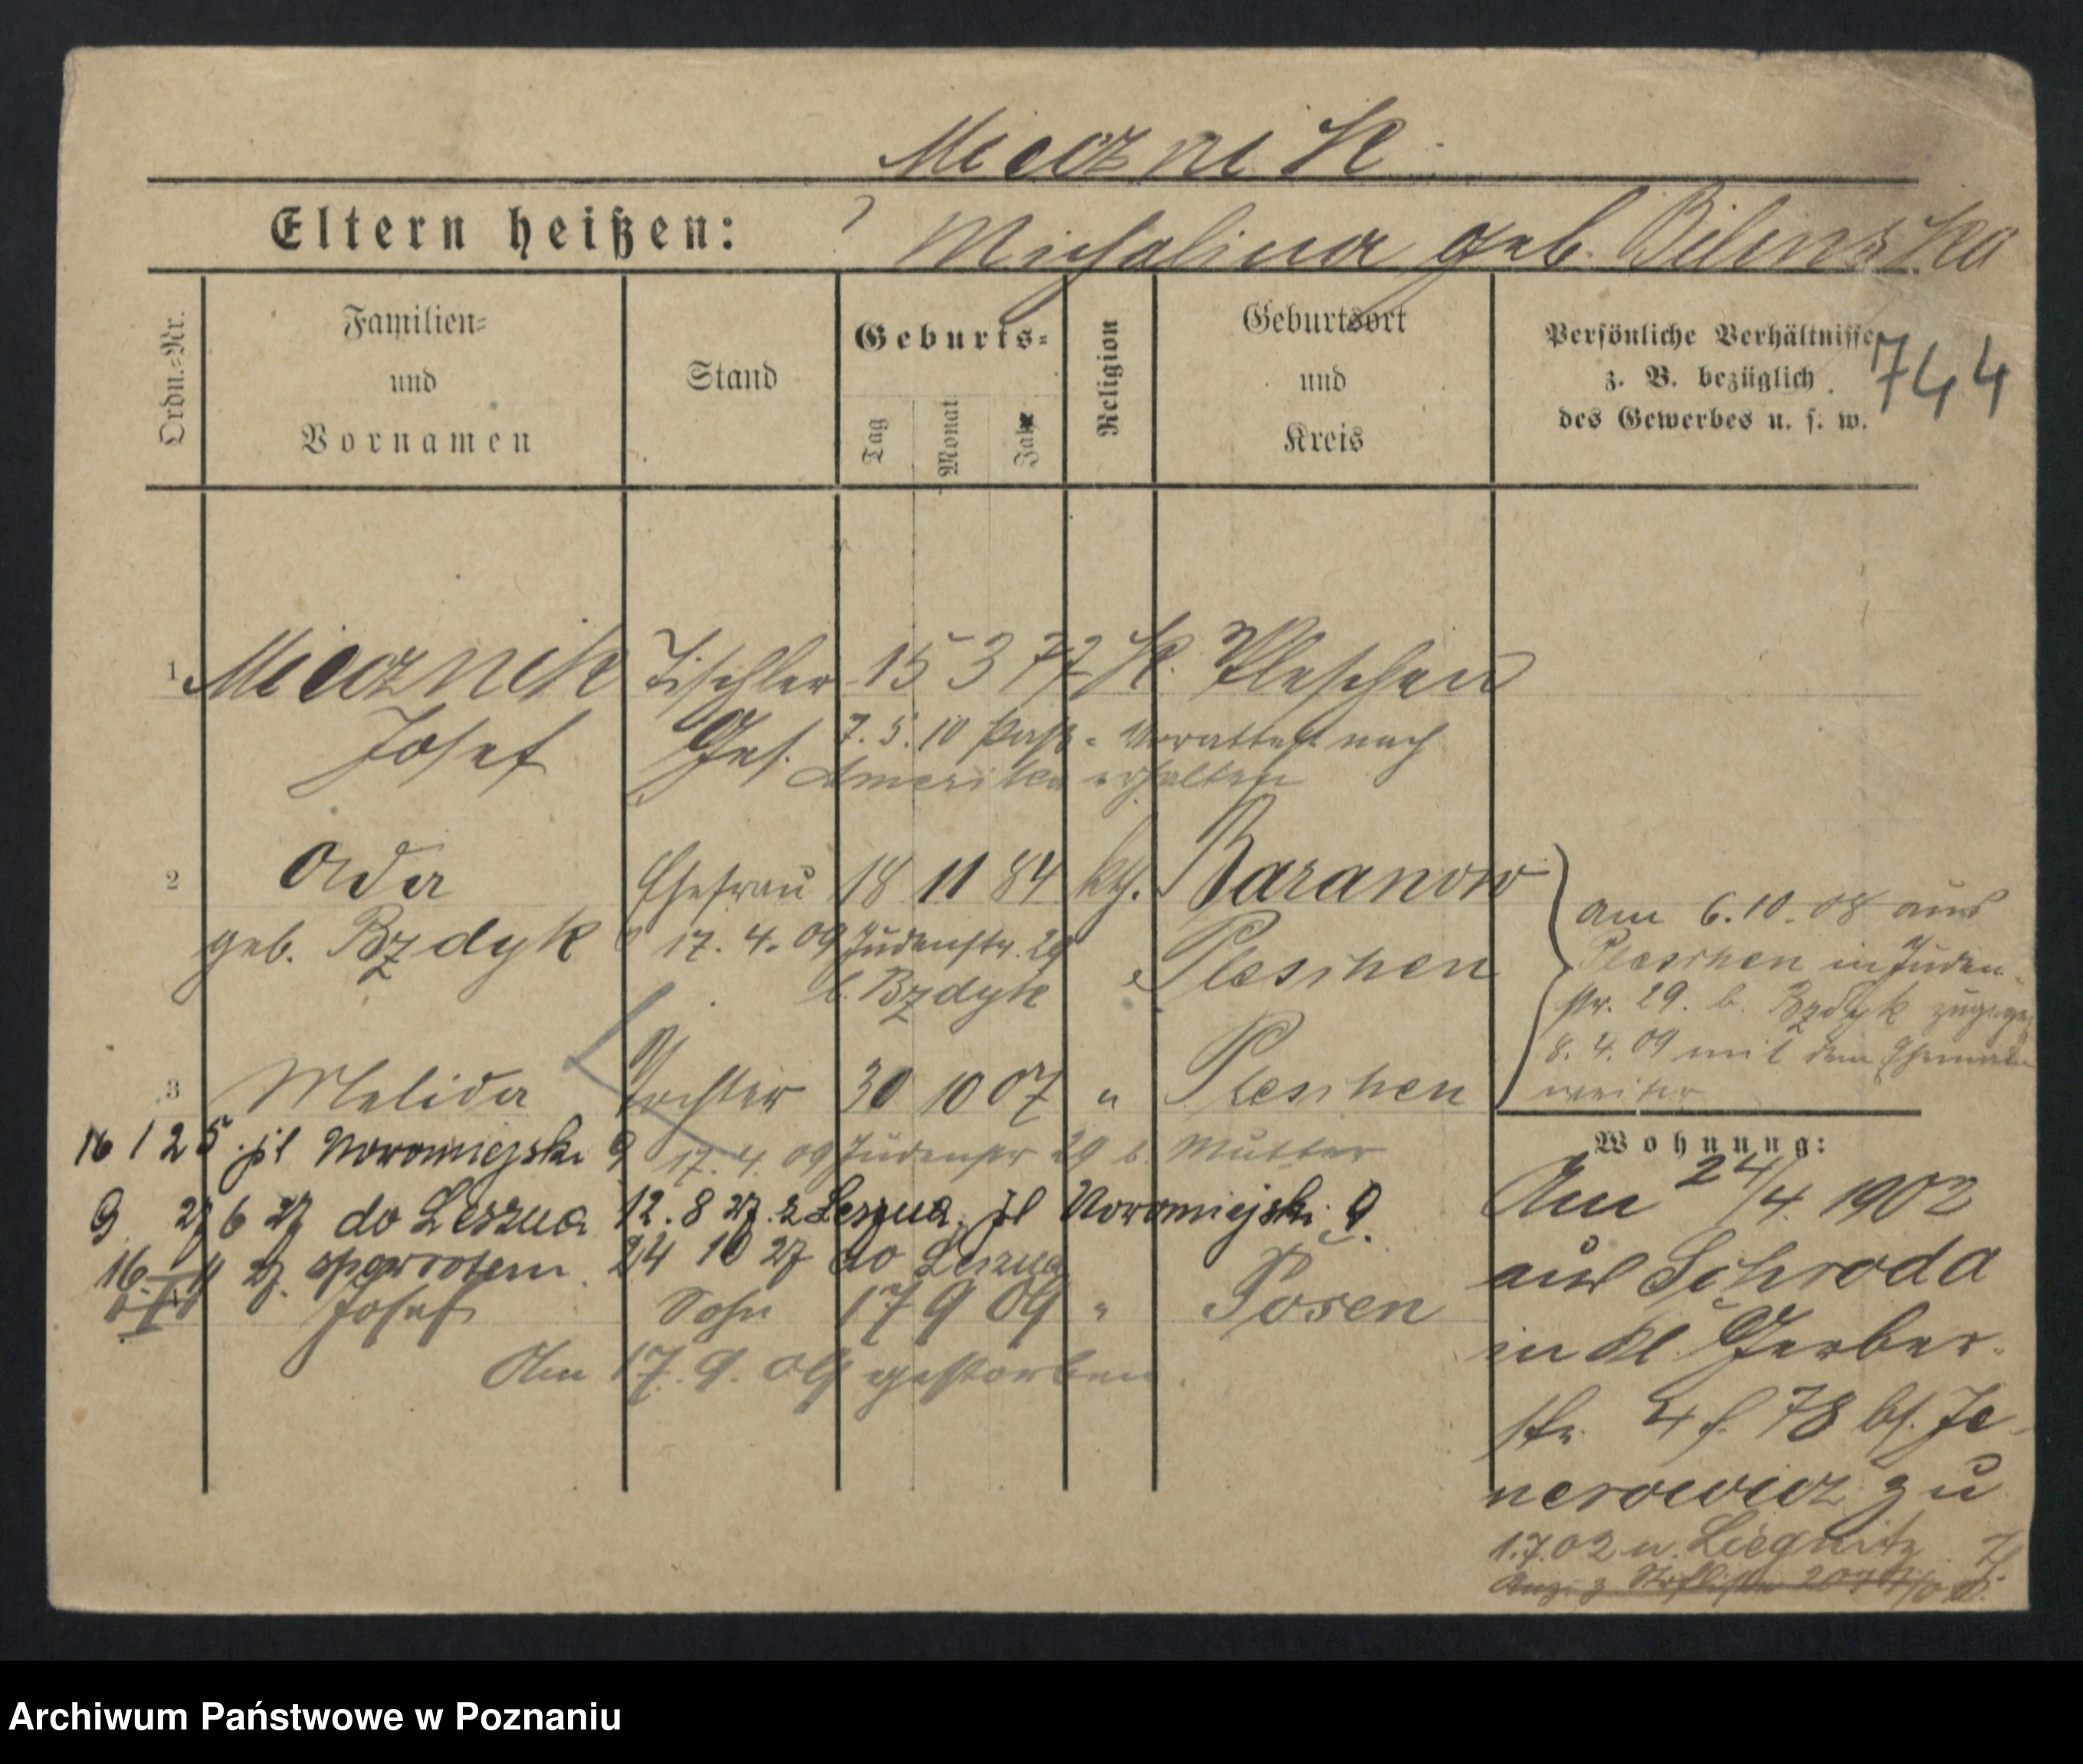 Miecznik
Eltern heißen: ? Michalina geb. Bilinska
Ordn.-Nr.
Familien-
und
Vornamen
Stand
Geburts-
Tag
Monat
Jahr
Religion
Geburtsort
und
Kreis
Persönliche Verhältnisse
z. B. bezüglich
des Gewerbes u. s. w.
744
1 Miecznik Tischler 15 3 77 K. Pleschen
Josef Ges. 7. 5. 10 Paß- nach
Amerika erhalten
2 Ada Ehefrau 18 11 84 kth. Baranow
geb. Bzdyk 17. 4. 09 Judenstr. 29 Pleschen
b. Bzdyk
am 6.10.08 aus
Pleschen in Juden-
str. 29. b. Bzdyk
8. 4. 09 mit dem
weiter
3 Melida Tochter 30 10 07 " Pleschen
16 1 25 pl Nowomiejski 9 17. 4. 09 29 b. Mutter
9 27 6 27 do Leszna 12. 8 27. z Leszna. pl Nowomiejski 9
16 11 27. spowrotem. 24 10 27 do Leszna
Josef Sohn 17 9 09 " Posen
Am 17. 9. 09 gestorben.
Wohnung:
Am 24/4. 1902
aus Schroda
in Kl. Gerber-
str. 4 78 bei
zu
1.7.02 n. Liegnitz